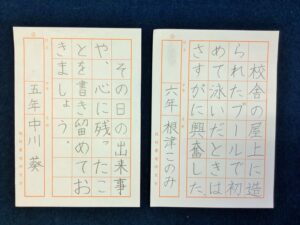 校舎の屋上に造
られたプールで初
めて泳いだときは
さすがに興奮した
六年 根津このみ
その日の出来事
や、心に残ったこ
とを書き留めてお
きましょう。
五年 中川 葵